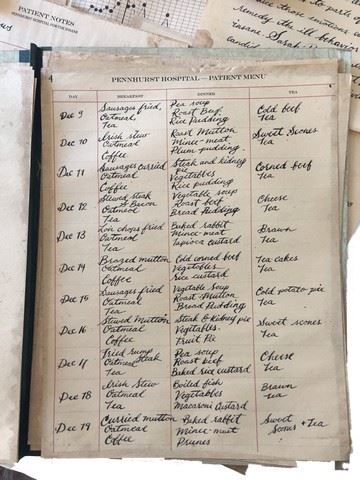 PATIENT NOTES
PENNHURST HOSPITAL FOR THE INSANE
those emotions
remedy the ill behavior
insane. Sarah
candid
PENNHURST HOSPITAL — PATIENT MENU
DAY BREAKFAST DINNER TEA
Dec 9 Sausages fried, Pea soup Cold beef
Oatmeal, Roast Beef Tea
Tea Rice Pudding
Dec 10 Irish stew Roast Mutton Sweet Scones
Oatmeal Mince-meat Tea
Coffee Plum pudding
Dec 11 Sausages curried Steak and kidney pie Corned beef
Oatmeal Vegetables Tea
Coffee Rice pudding
Dec 12 Stewed steak Vegetable soup Cheese
& Bacon Roast beef Tea
Oatmeal Bread Pudding
Tea
Dec 13 chops fried Baked rabbit Brawn
Oatmeal Mince-meat Tea
Tea Tapioca custard
Dec 14 Brazed mutton Cold corned beef Tea cakes
Oatmeal Vegetables Tea
Coffee Rice custard
Dec 15 Sausages fried Vegetable Soup Cold potato pie
Oatmeal Roast Mutton Tea
Tea Bread Pudding
Dec 16 Stewed Mutton Steak & Kidney pie Sweet scones
Oatmeal Vegetables. Tea
Coffee Fruit Pie
Dec 17 Fried rump steak Pea soup Cheese
Oatmeal Roast beef Tea
Tea Baked rice custard
Dec 18 Irish Stew Boiled fish Brawn
Oatmeal Vegetables Tea
Tea Macaroni Custard
Dec 19 Curried mutton Baked rabbit Sweet
Oatmeal Mince-meat Scones + Tea
Coffee Prunes